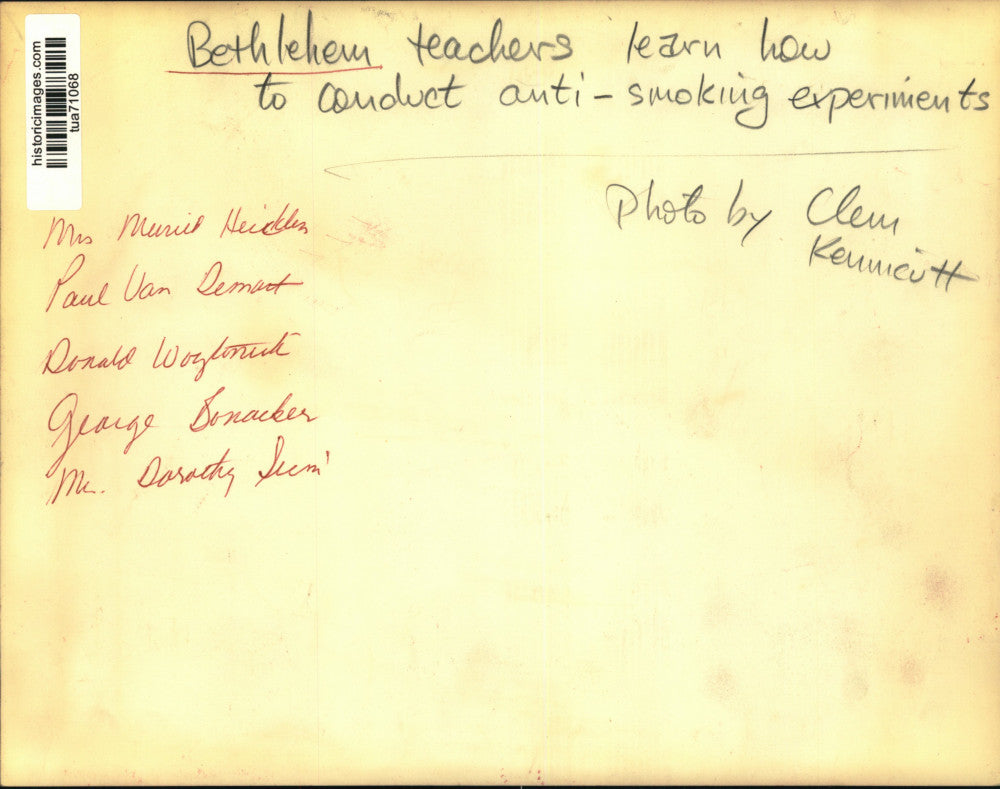 historicimages.com
tua71068
Bethlehem teachers learn how
to conduct anti-smoking experiments
Photo by Clem
Kennicutt
Mrs Muriel
Paul Van Demark
Donald
George Bonacker
Dorothy